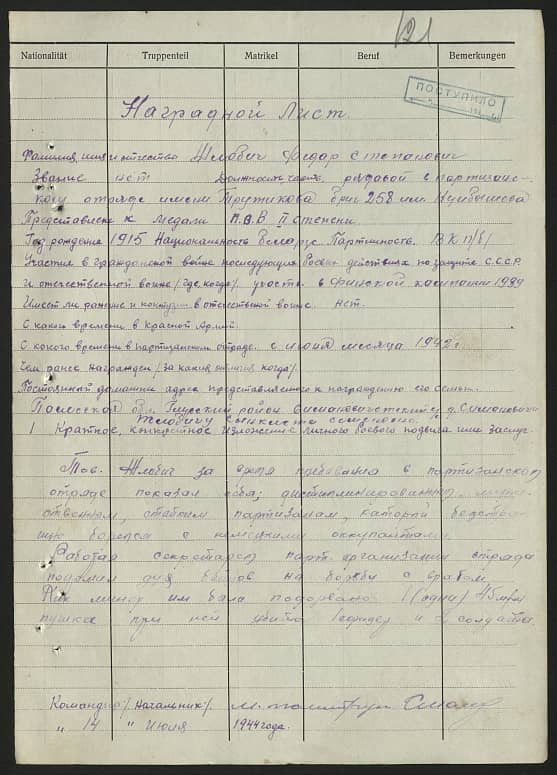 121
Nationalität Truppenteil Matrikel Beruf Bemerkungen
ПОСТУПИЛО
Наградной Лист.
Фамилия, имя и отчество Жлобич Федор Степанович
Звание нет Должность, часть. рядовой в партизанс-
кому отряде имени бриг 258 им. Куйбышева
Представлен к медали П.О.В. II степени
Год рождения 1915 Национальность Белорус. Партийность. ВКП/б/
Участие в гражданской войне последующих боевых действиях по защите С.С.С.Р.
и отечественной войне /где, когда/. участв в Финской кампании 1939
Имеет ли ранение и контузии в отечественой войне. нет.
С какого времени в Красной Армии.
С какого времени в партизанском отряде. с июня месяца 1942 г
Чем ранее награжден /за какие отличия когда/.
Постоянный домашний адрес представляемого к награждению его семьи.
Полесская обл. Глусский район д. Симоновичи
Жлобичу
1 Краткое, конкретное изложение личного боевого подвига или заслуг.
Тов. Жлобич за время пребывания в партизанском
отряде показал себя, дисциплинированным, муже-
ственным, стойким партизаном, который
боролся с немецкими оккупантами.
Работая секретарем парт. организации отряда
на борьбу с врагом.
им была подорвана 1 (одна) 45 мм
пушка при ней убито 1 офицер и 2 солдата.
Командир /Начальник/.
" 14 " Июля 1944 года.